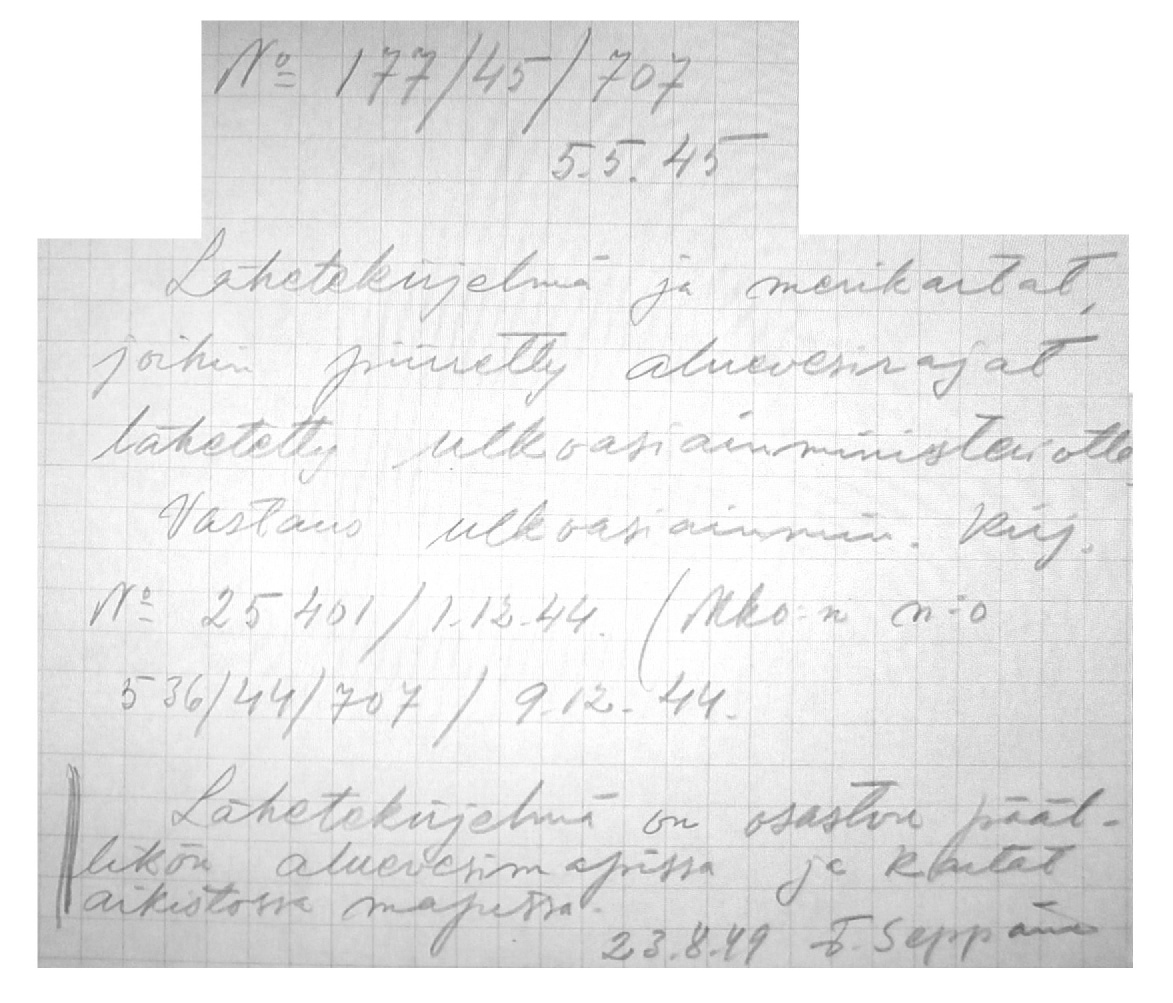 Nº 177/45/707
5.5.45
Lähetekirjelmä ja merikartat,
joihin piirretty aluevesirajat
lähetetty ulkoasiainministeriölle
Vastaus ulkoasiainmin. kirj.
Nº 25401/1.12.44. (Mko:n n:o
536/44/707 / 9.12.44.
Lähetekirjelmä on osaston pääl-
likön aluevesimapissa ja kartat
arkistossa mapissa.
23.8.49 Seppänen